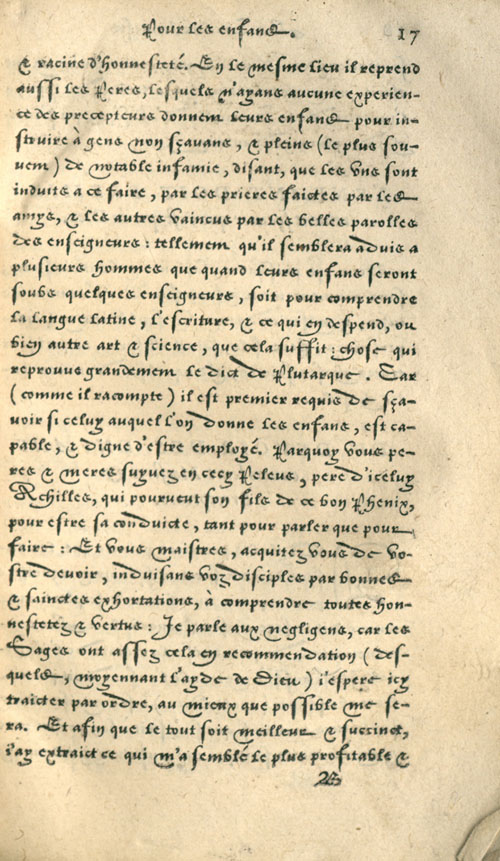 Pour les enfans. 17
& racine d'honnesteté. En le mesme lieu il reprend
aussi les Peres, lesquels n'ayans aucune experien-
ce des precepteurs donnent leurs enfans pour in-
struire à gens non sçavans, & pleins (le plus sou-
vent) de notable infamie, disant, que les uns sont
induits a ce faire, par les prieres faictes par les
amys, & les autres vaincus par les belles parolles
des enseigneurs : tellement qu'il semblera advis a
plusieurs hommes que quand leurs enfans seront
soubs quelques enseigneurs, soit pour comprendre
la langue latine, l'escriture, & ce qui en despend, ou
bien autre art & science, que cela suffit : chose qui
reprouve grandement le dict de Plutarque. Car
(comme il racompte) il est premier requis de sça-
voir si celuy auquel l'on donne les enfans, est ca-
pable, & digne d'estre employé. Parquoy vous pe-
res & meres suyvez en cecy Peleus, pere d'iceluy
Achilles, qui pourveut son fils de ce bon Phenix,
pour estre sa conduicte, tant pour parler que pour
faire : Et vous maistres, acquitez vous de vo-
stre devoir, induisans voz disciples par bonnes
& sainctes exhortations, à comprendre toutes hon-
nestetez & vertus : Je parle aux negligens, car les
Sages ont assez cela en recommendation (des-
quels, moyennant l'ayde de Dieu) i'espere icy
traicter par ordre, au mieux que possible me se-
ra. Et afin que le tout soit meilleur & succinct,
i'ay extraict ce qui m'a semblé le plus profitable &
B